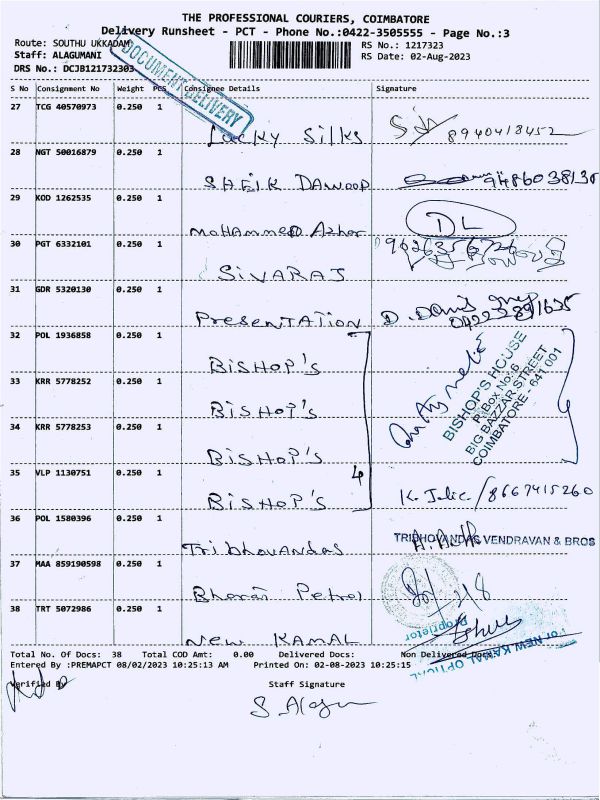 THE PROFESSIONAL COURIERS, COIMBATORE
Delivery Runsheet - PCT - Phone No.:0422-3505555 - Page No.:3
Route: SOUTHU UKKADAM RS No.: 1217323
Staff: ALAGUMANI RS Date: 02-Aug-2023
DRS No.: DCJB121732303
DOCUMENT DELIVERY
S No Consignment No Weight PCS Consignee Details Signature
27 TCG 40570973 0.250 1
Lucky Silks 8940413452
28 NGT 50016879 0.250 1
SHEIK DAWOOD 9486038130
29 KOD 1262535 0.250 1
Mohammed Azhar DL
30 PGT 6332101 0.250 1
SIVARAJ
31 GDR 5320130 0.250 1
PRESENTATION D.
32 POL 1936858 0.250 1
BISHOP'S
33 KRR 5778252 0.250 1
BISHOP'S
BISHOP'S HOUSE
P.Box No:6
BIG BAZZAR STREET
COIMBATORE - 641 001
34 KRR 5778253 0.250 1
BISHOP'S
35 VLP 1130751 0.250 1
4
BISHOP'S 8667415260
36 POL 1580396 0.250 1
Tribhovandas TRIBHOVANDAS VENDRAVAN & BROS
37 MAA 859190598 0.250 1
Bharat Petrol
38 TRT 5072986 0.250 1
Proprietor
NEW KAMAL For NEW KAMAL OPTICAL
Total No. of Docs: 38 Total COD Amt: 0.00 Delivered Docs: Non Delivered Docs:
Entered By :PREMAPCT 08/02/2023 10:25:13 AM Printed On: 02-08-2023 10:25:15
Verified By Staff Signature
S. Alagu